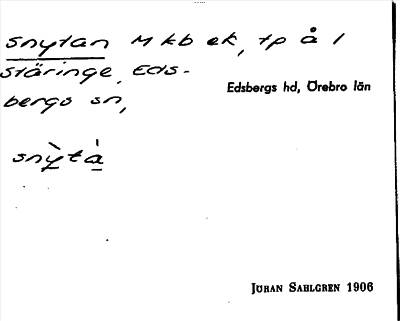 Snytan Mkb ek, tp å 1
Stäringe, Eds-
bergs sn,
Edsbergs hd, Örebro län
snỳtà
JÖRAN SAHLGREN 1906